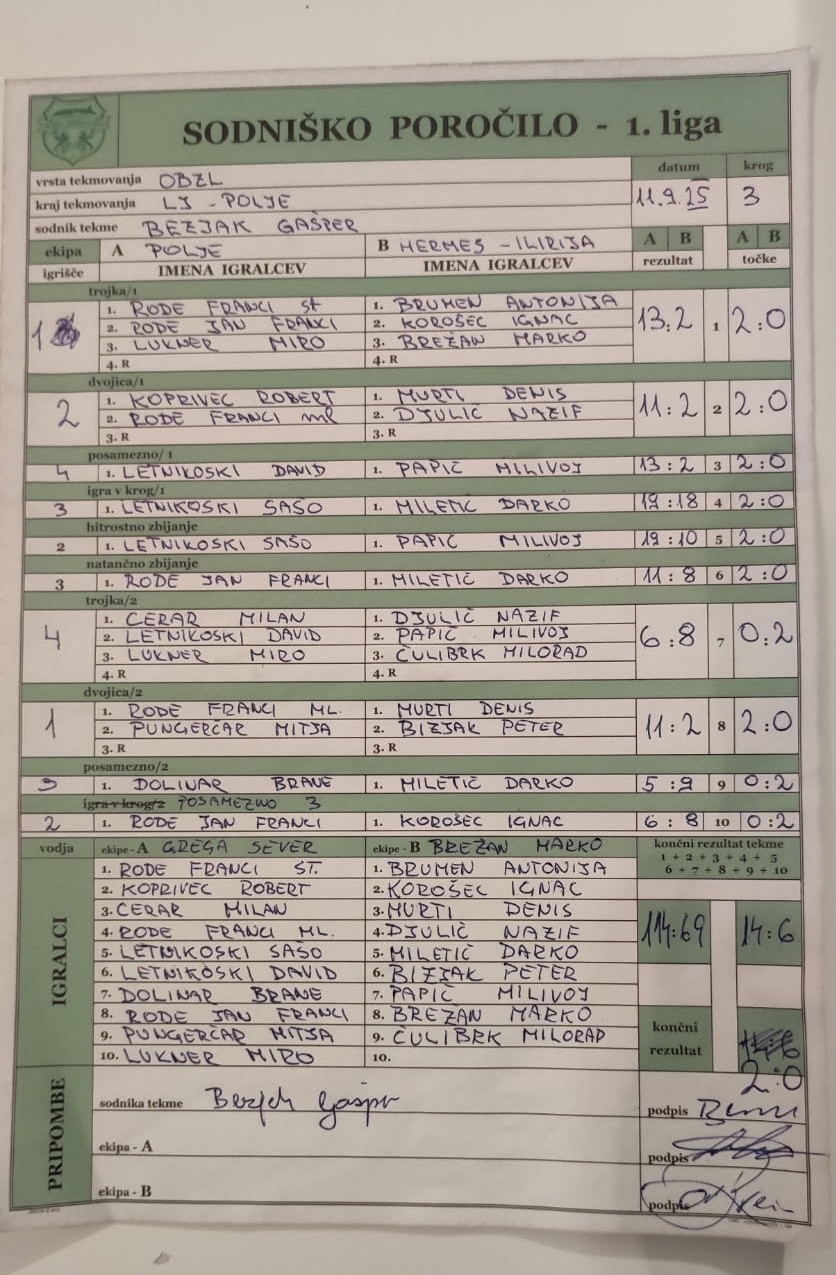 SODNIŠKO POROČILO - 1. liga
vrsta tekmovanja OBZL datum krog
kraj tekmovanja LJ - POLJE 11.9.25 3
sodnik tekme BEZJAK GAŠPER
ekipa A POLJE B HERMES - ILIRIJA A B A B
igrišče IMENA IGRALCEV IMENA IGRALCEV rezultat točke
trojka/1
1 1. RODE FRANCI St 1. BRUMEN ANTONIJA 13:2 1 2:0
2. RODE JAN FRANCI 2. KOROŠEC IGNAC
3. LUKNER MIRO 3. BREŽAN MARKO
4. R 4. R
dvojica/1
2 1. KOPRIVEC ROBERT 1. MURTI DENIS 11:2 2 2:0
2. RODE FRANCI ml 2. DJULIČ NAZIF
3. R 3. R
posamezno/ 1
4 1. LETNIKOSKI DAVID 1. PAPIČ MILIVOJ 13:2 3 2:0
igra v krog/1
3 1. LETNIKOSKI SAŠO 1. MILETIČ DARKO 19:18 4 2:0
hitrostno zbijanje
2 1. LETNIKOSKI SAŠO 1. PAPIČ MILIVOJ 19:10 5 2:0
natančno zbijanje
3 1. RODE JAN FRANCI 1. MILETIČ DARKO 11:8 6 2:0
trojka/2
4 1. CERAR MILAN 1. DJULIČ NAZIF 6:8 7 0:2
2. LETNIKOSKI DAVID 2. PAPIČ MILIVOJ
3. LUKNER MIRO 3. ČULIBRK MILORAD
4. R 4. R
dvojica/2
1 1. RODE FRANCI ML. 1. MURTI DENIS 11:2 8 2:0
2. PUNGERČAR MITJA 2. BIZJAK PETER
3. R 3. R
posamezno/2
3 1. DOLINAR BRANE 1. MILETIČ DARKO 5:9 9 0:2
igra v krog/2 POSAMEZNO 3
2 1. RODE JAN FRANCI 1. KOROŠEC IGNAC 6:8 10 0:2
vodja ekipe - A GREGA SEVER ekipe - B BREŽAN MARKO končni rezultat tekme
1 + 2 + 3 + 4 + 5
6 + 7 + 8 + 9 + 10
IGRALCI
1. RODE FRANCI ST. 1. BRUMEN ANTONIJA
2. KOPRIVEC ROBERT 2. KOROŠEC IGNAC
3. CERAR MILAN 3. MURTI DENIS
4. RODE FRANCI ML. 4. DJULIČ NAZIF 114:69 14:6
5. LETNIKOSKI SAŠO 5. MILETIČ DARKO
6. LETNIKOSKI DAVID 6. BIZJAK PETER
7. DOLINAR BRANE 7. PAPIČ MILIVOJ
8. RODE JAN FRANCI 8. BREŽAN MARKO
9. PUNGERČAR MITJA 9. ČULIBRK MILORAD
10. LUKNER MIRO 10.
končni
rezultat 2:0
PRIPOMBE
sodnika tekme Bezjak Gašper podpis
ekipa - A podpis
ekipa - B podpis